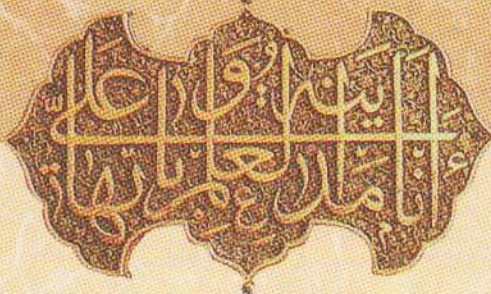 أنا مدينة العلم وعلیّ بابها